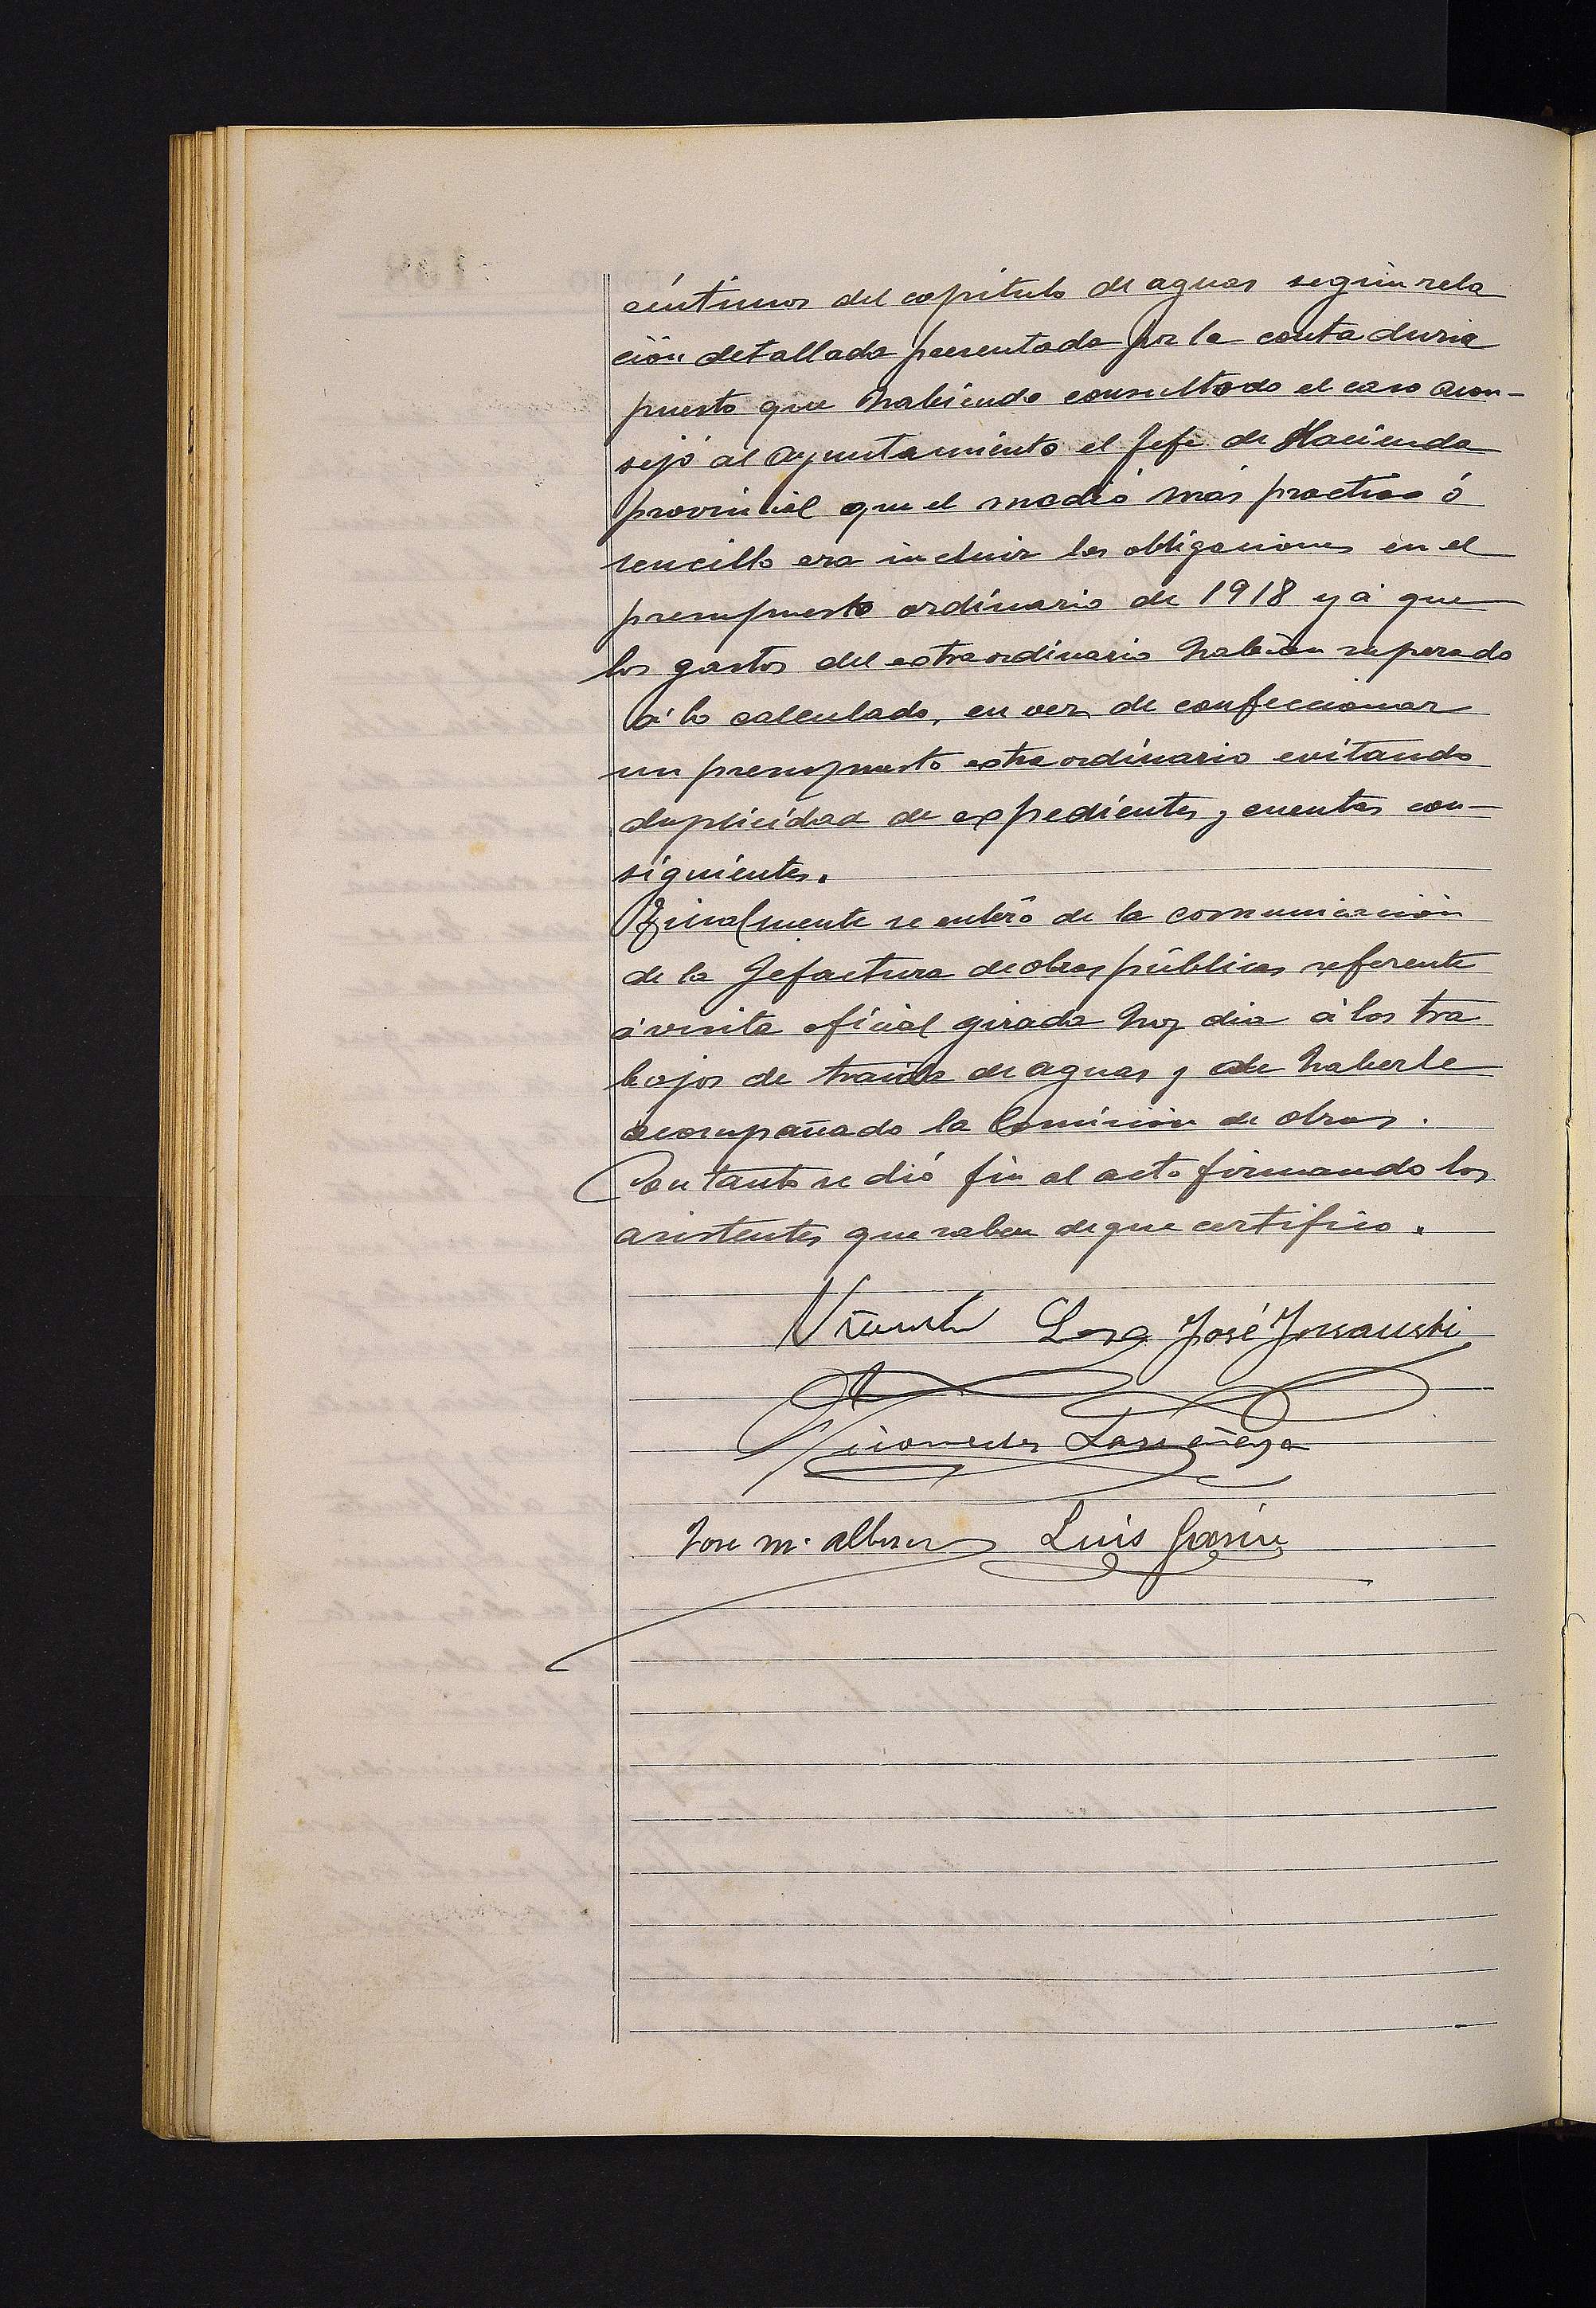 céntimos del capítulo de aguas según rela
ción detallada presentada por la contaduria
puesto que habiendo consultado el caso acon-
sejó al Ayuntamiento el Jefe de Hacienda
provincial que el medio más practico ó
sencillo era incluir las obligaciones en el
presupuesto ordinario de 1918 yá que
los gastos del extraordinario habian superado
á lo calculado, en vez de confeccionar
un presupuesto extraordinario evitando
duplicidad de expedientes y cuentas con-
siguientes.
Finalmente se enteró de la comunicación
de la Jefactura de obras públicas referente
á visita oficial girada hoy dia á los tra
bajos de traida de aguas y de haberle
acompañado la Comisión de obras.
Con tanto se dió fin al acto firmando los
asistentes que saben de que certifico.
Vicente José
Nicomedes
Jose Mª Luis Garcia